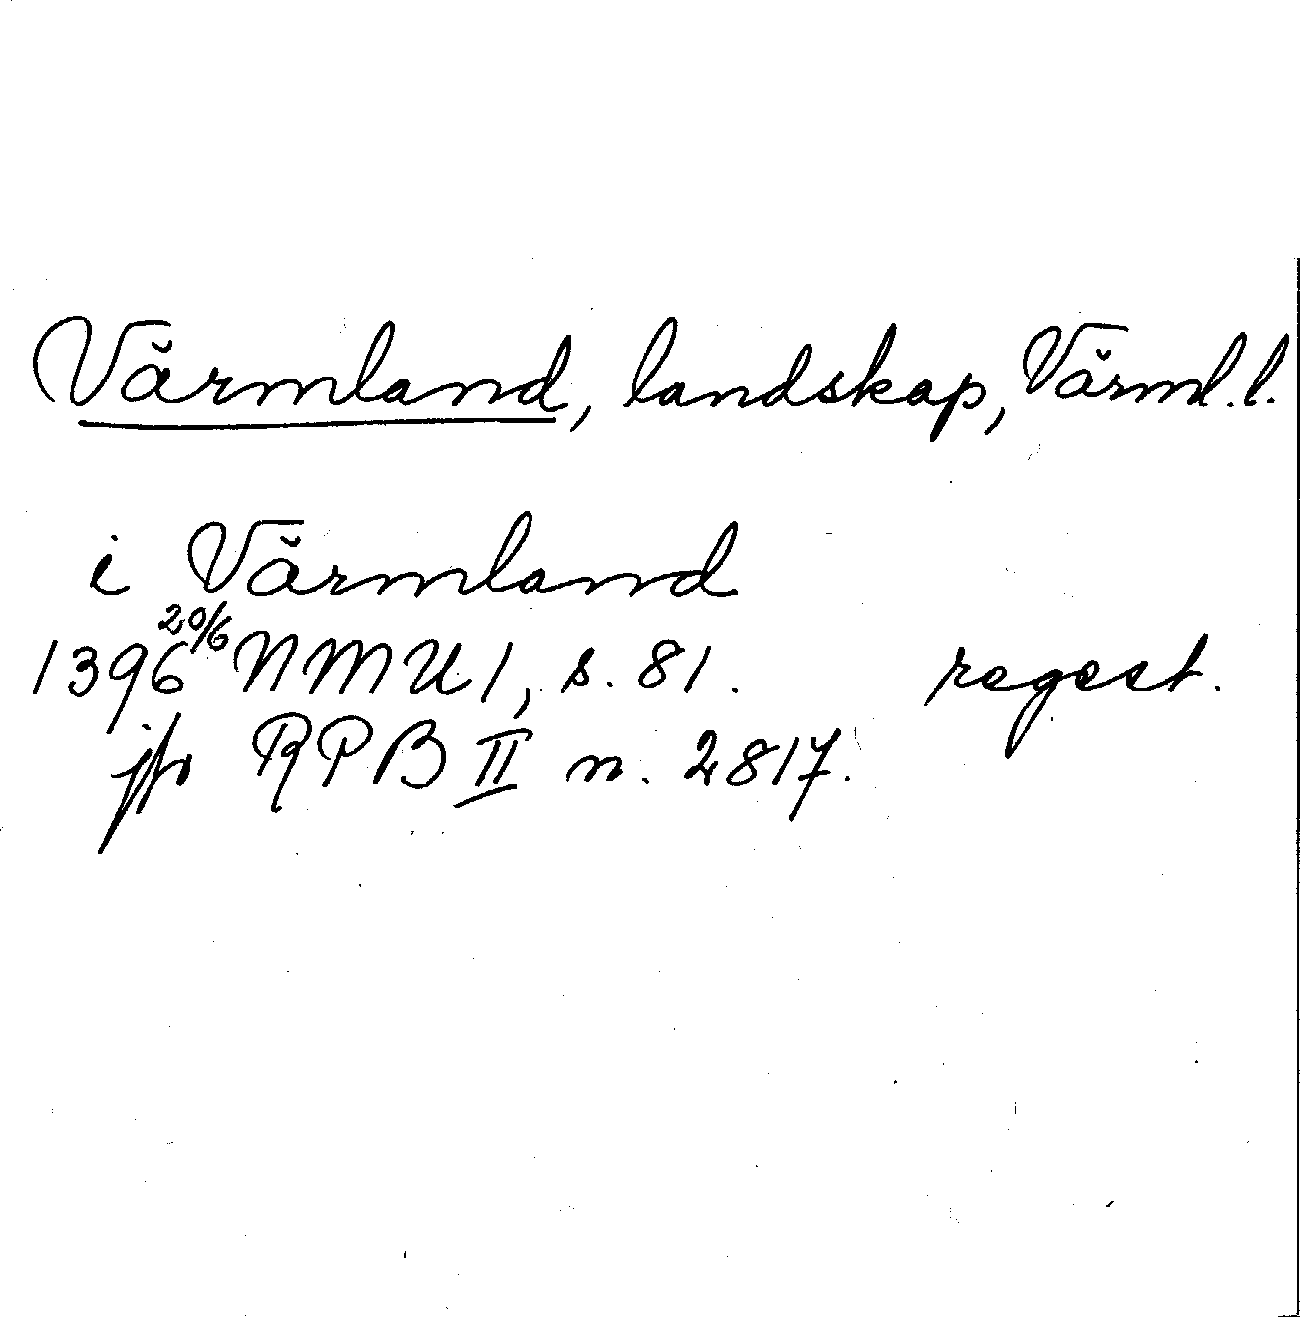 Värmland, landskap, Värml. l.
i Värmland
1396 20/6 NMU 1, s. 81. regest.
jfr RPB II n. 2817.